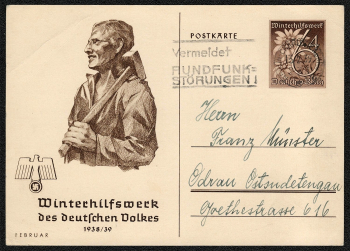 POSTKARTE
Vermeldet
RUNDFUNK=
STÖRUNGEN!
Winterhilfswerk
6+4
Deutsches Reich
Herrn
Franz Münster
Odrau Ostsudetengau
Goethestrasse 616
Winterhilfswerk
des deutschen Volkes
1938/39
FEBRUAR